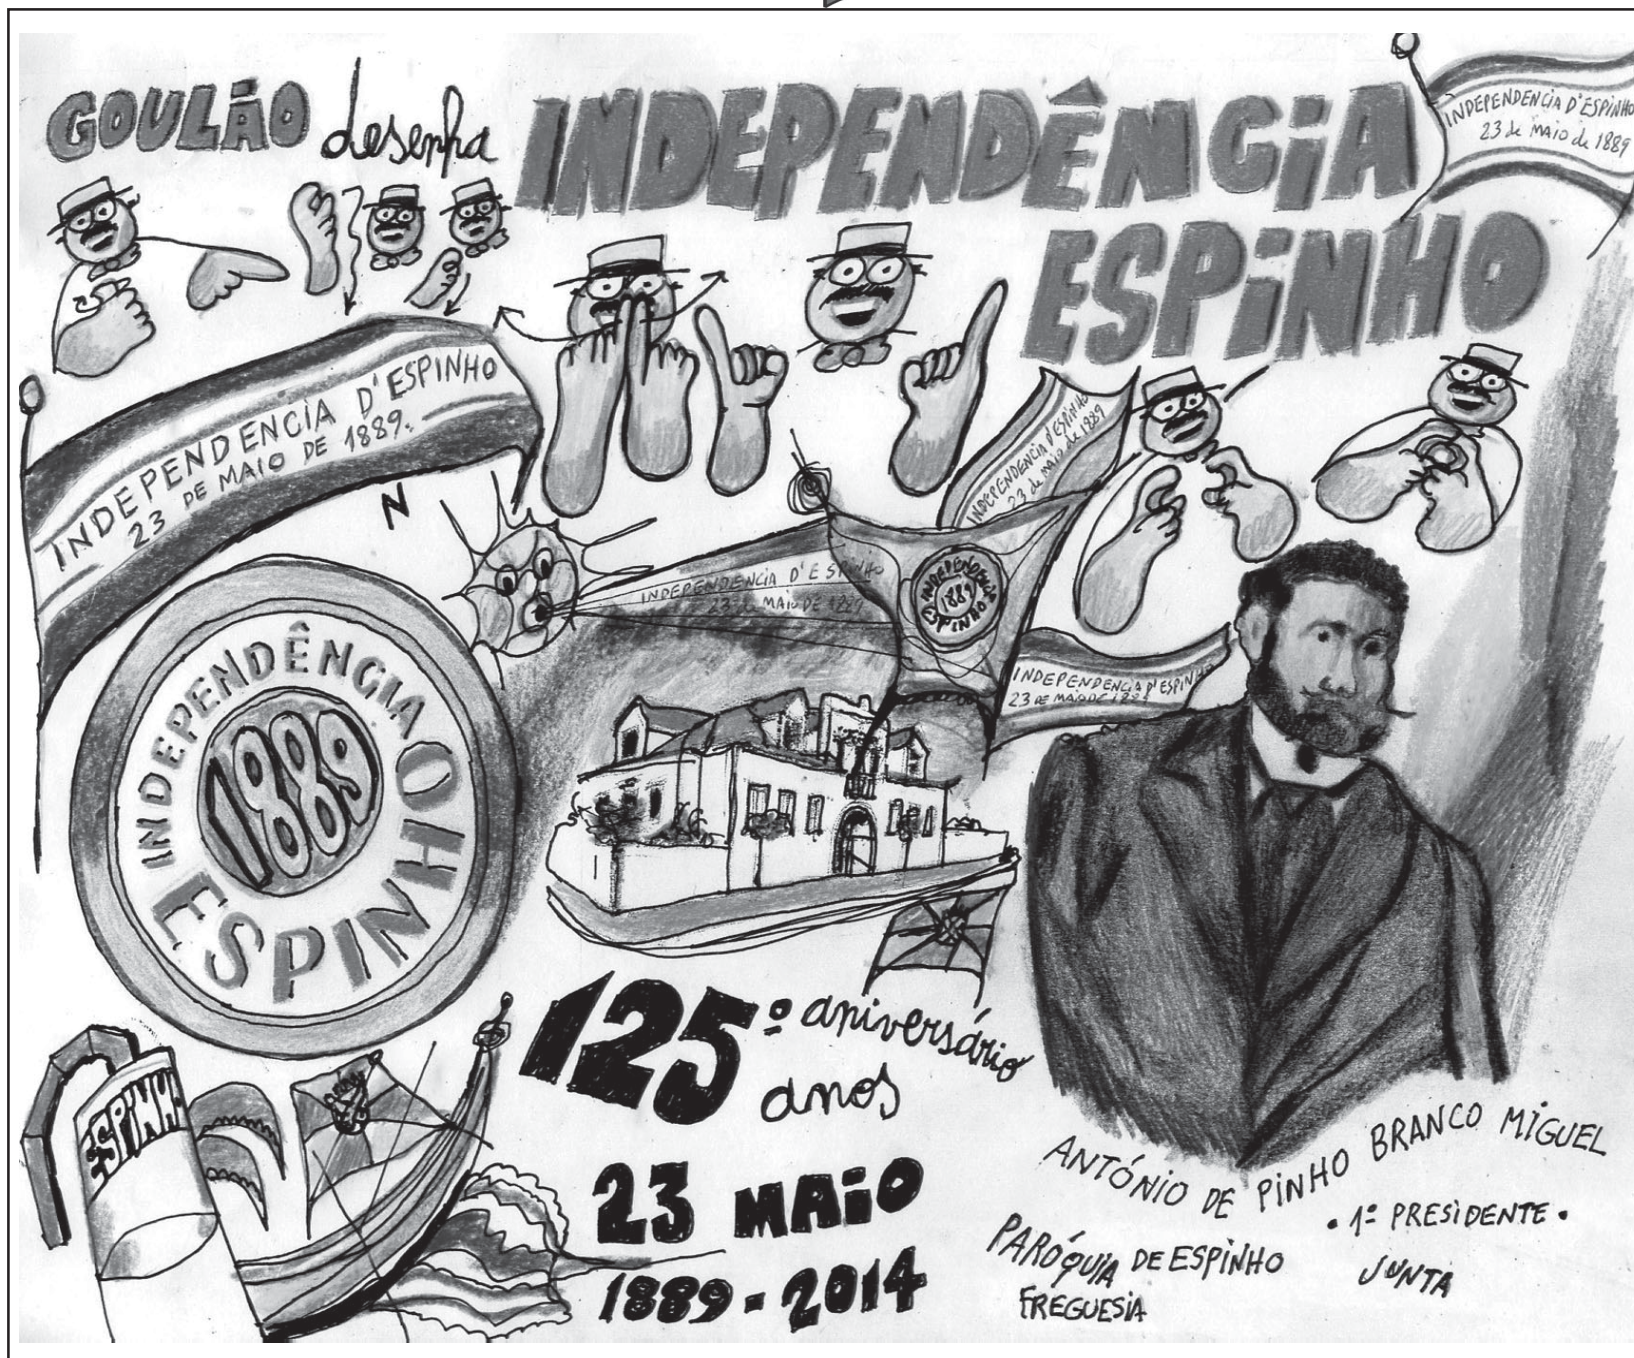 GOULÃO desenha
INDEPENDÊNCIA
ESPINHO
INDEPENDENCIA D'ESPINHO
23 de MAIO de 1889
INDEPENDENCIA D'ESPINHO
23 DE MAIO DE 1889.
N
INDEPENDENCIA D'ESPINHO
23 de MAIO de 1889
INDEPENDENCIA D'ESPINHO
23 de MAIO DE 1889
INDEPENDÊNCIA
1889
ESPINHO
INDEPENDENCIA D'ESPINHO
23 DE MAIO DE 1889
INDEPENDÊNCIA
1889
ESPINHO
125º aniversário
anos
23 MAIO
1889-2014
ESPINHO
ANTÓNIO DE PINHO BRANCO MIGUEL
• 1º PRESIDENTE •
JUNTA
PARÓQUIA DE ESPINHO
FREGUESIA